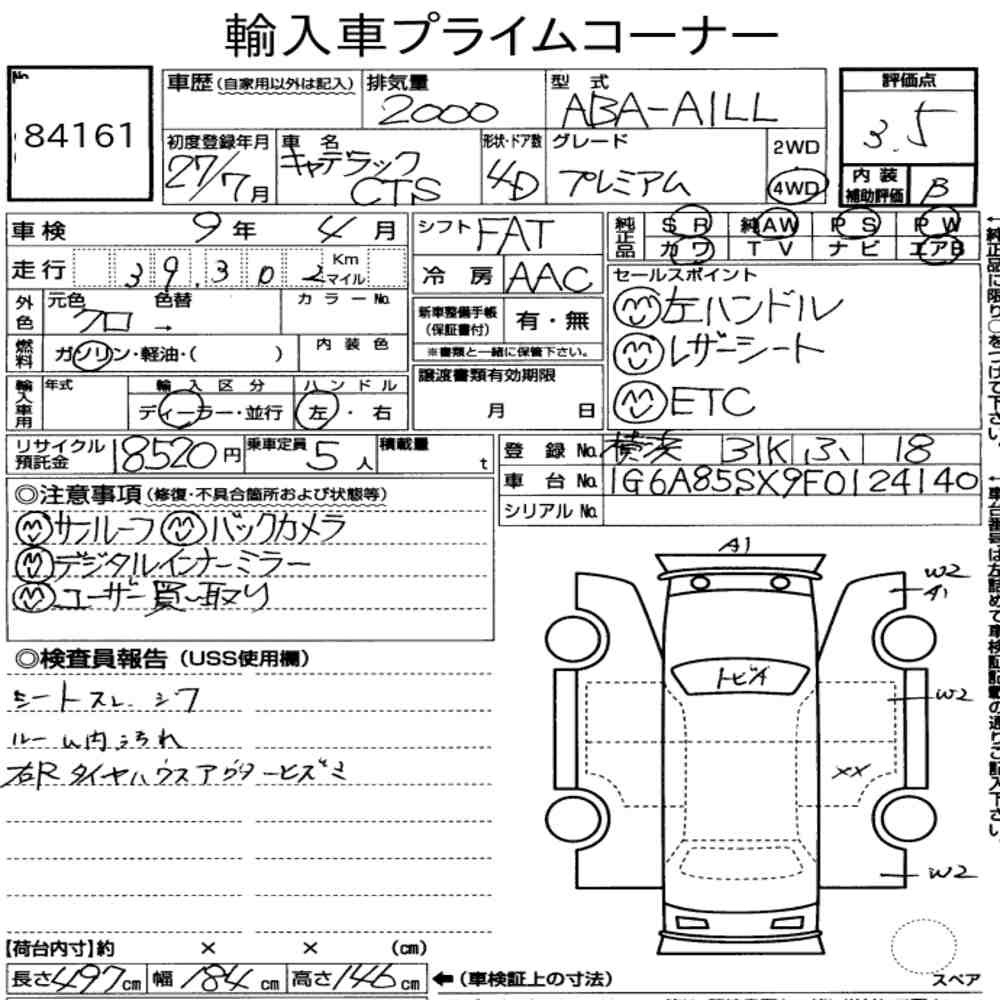 輸入車プライムコーナー
No.
84161
車歴(自家用以外は記入)
排気量
2000
型 式
ABA-A1LL
評価点
3.5
初度登録年月
27/7月
車 名
キャデラック
CTS
形状・ドア数
4D
グレード
プレミアム
2WD
4WD
内 装
補助評価
B
車検 9年 4月
シフト FAT
純正品
S R 純AW P S P W
カワ TV ナビ エアB
走行 39,302 Km
マイル
冷 房 AAC
セールスポイント
左ハンドル
レザーシート
ETC
外色
元色 色替
クロ →
カラーNo.
新車整備手帳
(保証書付)
有・無
※書類と一緒に保管下さい。
燃料
ガソリン・軽油・( )
内 装 色
譲渡書類有効期限
月 日
輸入車用
年式
輸 入 区 分
ハ ン ド ル
ディーラー・並行
左・右
リサイクル
預託金
18520円
乗車定員
5人
積載量
t
登 録 No. 横浜 31K ふ 18
車 台 No. 1G6A85SX9F0124140
シリアル No.
◎注意事項(修復・不具合箇所および状態等)
サンルーフ バックカメラ
デジタルインナーミラー
ユーザー買い取り
◎検査員報告(USS使用欄)
シートスレ、シワ
ルーム内汚れ
右Rタイヤハウスアウターヒズミ
A1
W2
A1
トビA
W2
XX
W2
スペア
【荷台内寸】約 × × (cm)
長さ497cm 幅184cm 高さ146cm
←(車検証上の寸法)
←純正品に限り○をつけて下さい。
←車台番号は左詰めで車検証記載の通りご記入下さい。